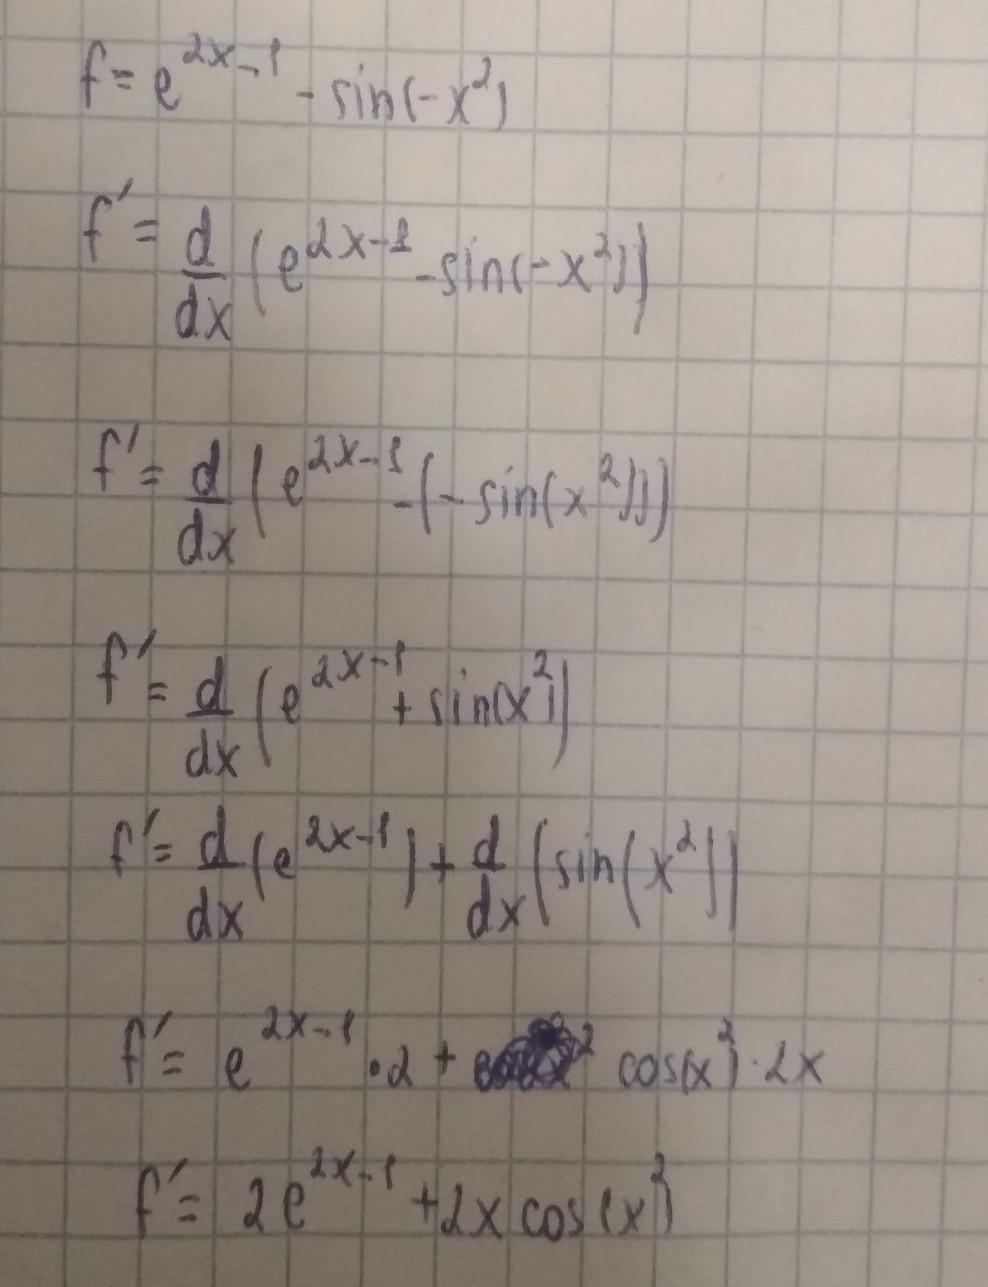 f = e^{2x-1} - sin(-x²)
f' = d/dx (e^{2x-1} - sin(-x²))
f' = d/dx (e^{2x-1} - (-sin(x²)))
f' = d/dx (e^{2x-1} + sin(x²))
f' = d/dx (e^{2x-1}) + d/dx (sin(x²))
f' = e^{2x-1} · 2 + cos(x²) · 2x
f' = 2e^{2x-1} + 2x cos(x²)